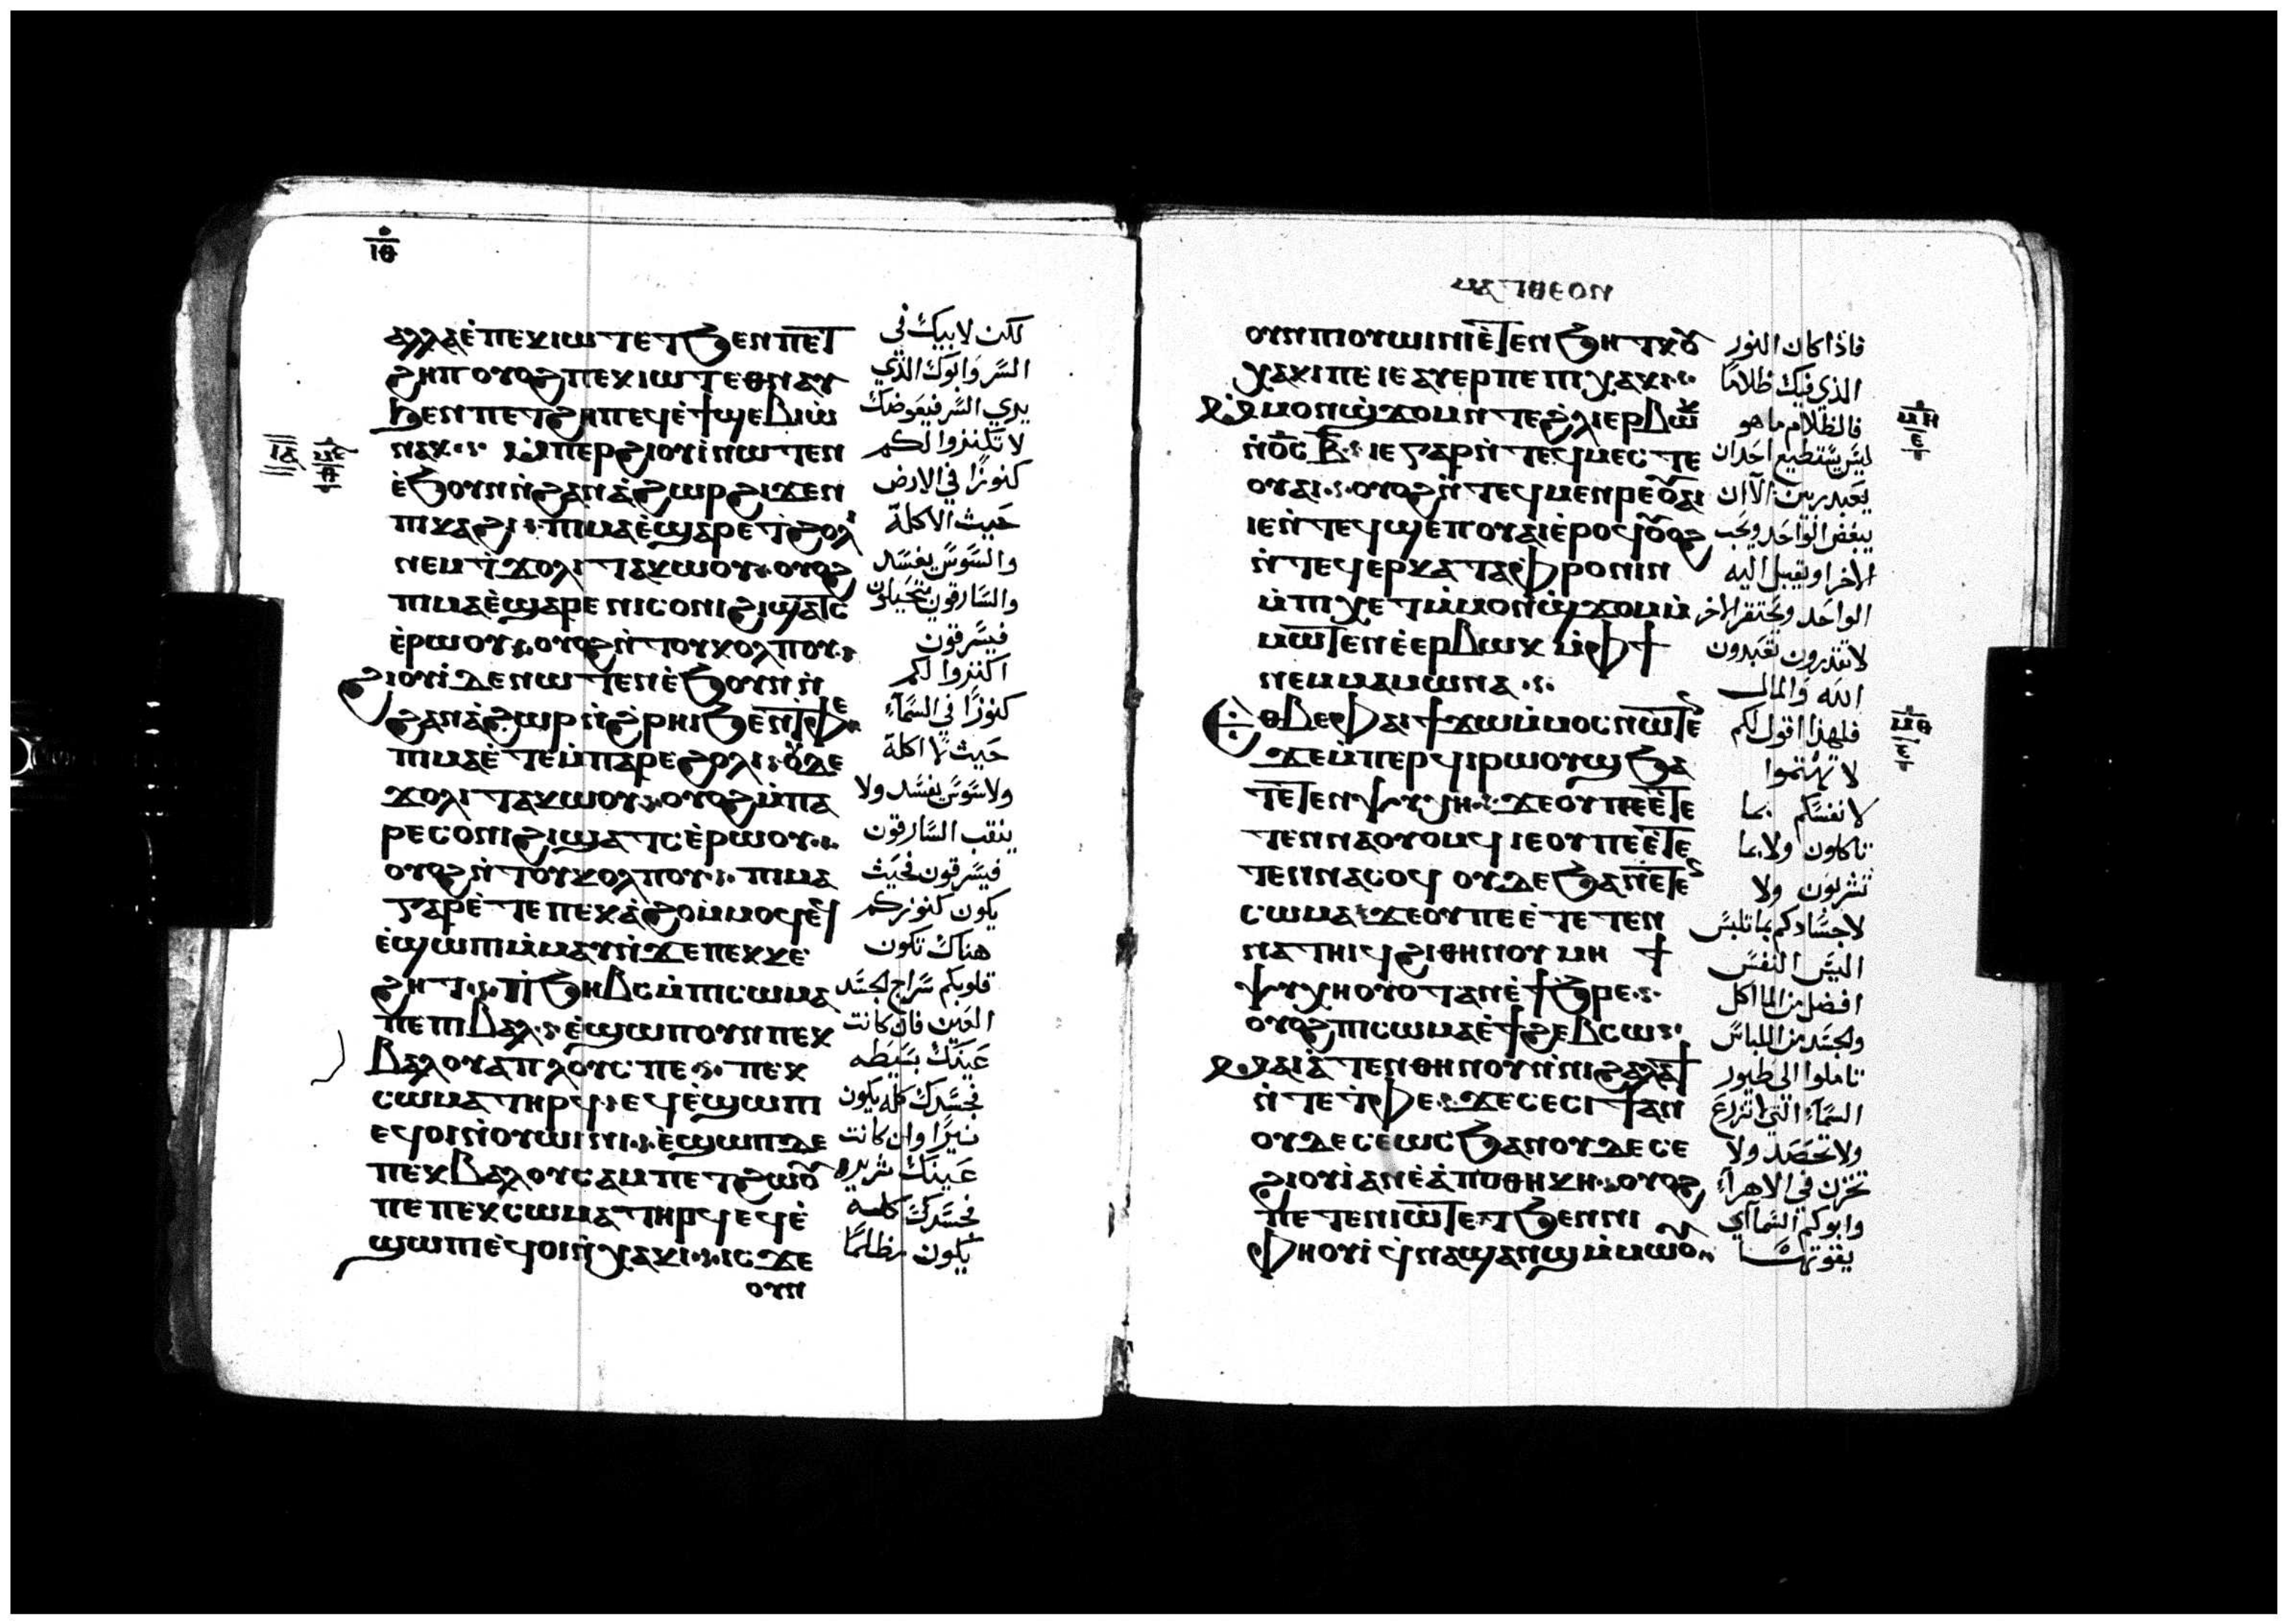 ⲓⲑ
ⲁⲗⲗⲁ ⲉ̀ⲡⲉⲕⲓⲱⲧ ⲉⲧϧⲉⲛ ⲡⲉⲧ
ϩⲏⲡ ⲟⲩⲟϩ ⲡⲉⲕⲓⲱⲧ ⲉⲑⲛⲁⲩ
ϧⲉⲛ ⲡⲉⲧϩⲏⲡ ⲉϥⲉ̀ϯϣⲉⲃⲓⲱ̀
ⲛⲁⲕ ⲙ̀ⲡⲉⲣϩⲓⲟⲩⲓ̀ ⲛⲱⲧⲉⲛ
ⲉ̀ϧⲟⲩⲛ ⲛ̀ϩⲁⲛⲁ̀ϩⲱⲣ ϩⲓϫⲉⲛ
ⲡⲓⲕⲁϩⲓ ⲡⲓⲙⲁ ⲉ̀ϣⲁⲣⲉ ϯϩⲟⲗⲓ
ⲛⲉⲙ ϯϫⲟⲗⲓ ⲧⲁⲕⲱⲟⲩ ⲟⲩⲟϩ
ⲡⲓⲙⲁ ⲉ̀ϣⲁⲣⲉ ⲛⲓⲥⲟⲛⲓ ϩⲓϣⲁⲧⲥ
ⲉ̀ⲣⲱⲟⲩ ⲟⲩⲟϩ ⲛ̀ⲧⲟⲩⲕⲟⲗⲡⲟⲩ
ϩⲓⲟⲩⲓ̀ ⲇⲉ ⲛⲱⲧⲉⲛ ⲉ̀ϧⲟⲩⲛ ⲛ̀
ϩⲁⲛⲁ̀ϩⲱⲣ ⲛ̀ϩ̀ⲣⲏⲓ ϧⲉⲛ ⲧ̀ⲫⲉ
ⲡⲓⲙⲁ ⲉ̀ⲧⲉ ⲙ̀ⲡⲁⲣⲉ ϩⲟⲗⲓ ⲟⲩⲇⲉ
ϫⲟⲗⲓ ⲧⲁⲕⲱⲟⲩ ⲟⲩⲟϩ ⲙ̀ⲡⲁ
ⲣⲉ ⲥⲟⲛⲓ ϩⲓϣⲁⲧⲥ ⲉ̀ⲣⲱⲟⲩ
ⲟⲩⲟϩ ⲛ̀ⲧⲟⲩⲕⲟⲗⲡⲟⲩ ⲡⲓⲙⲁ
ⲅⲁⲣ ⲉ̀ⲧⲉ ⲡⲉⲕⲁ̀ϩⲟ ⲙ̀ⲙⲟϥ ⲉϥ
ⲉ̀ϣⲱⲡⲓ ⲙ̀ⲙⲁⲩ ⲛ̀ϫⲉ ⲡⲉⲕⲕⲉ
ϩⲏⲧ ⲡ̀ϧⲏⲃⲥ ⲙ̀ⲡⲓⲥⲱⲙⲁ
ⲡⲉ ⲡⲓⲃⲁⲗ ⲉ̀ϣⲱⲡ ⲟⲩⲛ ⲡⲉⲕ
ⲃⲁⲗ ⲟⲩⲁⲡⲗⲟⲩⲥ ⲡⲉ ⲡⲉⲕ
ⲥⲱⲙⲁ ⲧⲏⲣϥ ⲉϥⲉ̀ϣⲱⲡⲓ
ⲉϥⲟⲓ ⲛ̀ⲟⲩⲱⲓⲛⲓ ⲉ̀ϣⲱⲡ ⲇⲉ
ⲡⲉⲕⲃⲁⲗ ⲟⲩⲥⲁⲙⲡⲉⲧϩⲱⲟⲩ
ⲡⲉ ⲡⲉⲕⲥⲱⲙⲁ ⲧⲏⲣϥ ⲉϥⲉ̀
ϣⲱⲡⲓ ⲉϥⲟⲓ ⲛ̀ⲭⲁⲕⲓ ⲓⲥϫⲉ
ⲟⲩⲛ
لكن لابيك في
السر وابوك الذي
يري السر فيعوضك
لا تكنزوا لكم
كنوزًا في الارض
حيث الاكلة
والسوس يفسد
والسارقون يتحيلون
فيسرقون
اكنزوا لكم
كنوزًا في السمآء
حيث لا اكلة
ولا سوس يفسد ولا
ينقب السارقون
فيسرقون فحيث
يكون كنوزكم
هناك تكون
قلوبكم سراج الجسد
العين فان كانت
عينك بسيطه
فجسدك كله يكون
نيرًا وان كانت
عينك شريره
فجسدك كله
يكون مظلمًا
ⲙⲁⲧⲑⲉⲟⲛ
ⲟⲩⲛ ⲡⲓⲟⲩⲱⲓⲛⲓ ⲉ̀ⲧⲉⲛϧⲏⲧⲕ ⲟⲩ
ⲭⲁⲕⲓ ⲡⲉ ⲓⲉ ⲁⲩⲉⲣ ⲡⲉ ⲡⲓⲭⲁⲕⲓ
ⲙ̀ⲙⲟⲛ ϣϫⲟⲙ ⲛ̀ⲧⲉ ϩ̀ⲗⲓ ⲉⲣⲃⲱⲕ
ⲛ̀ⲟ̅ⲥ̅ ⲃ̅ ⲓⲉ ⲅⲁⲣ ⲛ̀ⲧⲉϥⲙⲉⲥⲧⲉ
ⲟⲩⲁⲓ ⲟⲩⲟϩ ⲛ̀ⲧⲉϥⲙⲉⲛⲣⲉ ⲟⲩⲁⲓ
ⲓⲉ ⲛ̀ⲧⲉϥϣⲉⲡ ⲟⲩⲁⲓ ⲉ̀ⲣⲟϥ ⲟⲩⲟϩ
ⲛ̀ⲧⲉϥⲉⲣⲕⲁⲧⲁⲫⲣⲟⲛⲓⲛ
ⲙ̀ⲡⲓⲭⲉⲧ ⲙ̀ⲙⲟⲛ ϣ̀ϫⲟⲙ ⲙ̀
ⲙⲱⲧⲉⲛ ⲉ̀ⲉⲣⲃⲱⲕ ⲙ̀ⲫϯ
ⲛⲉⲙ ⲙⲁⲙⲱⲛⲁ
ⲉⲑⲃⲉ ⲫⲁⲓ ϯϫⲱ ⲙ̀ⲙⲟⲥ ⲛⲱⲧⲉⲛ
ϫⲉ ⲙ̀ⲡⲉⲣϥⲓⲣⲱⲟⲩϣ ϧⲁ
ⲧⲉⲧⲉⲛⲯⲩⲭⲏ ϫⲉ ⲟⲩ ⲡⲉ ⲉ̀ⲧⲉ
ⲧⲉⲛⲛⲁⲟⲩⲟⲙϥ ⲓⲉ ⲟⲩ ⲡⲉ ⲉ̀ⲧⲉ
ⲧⲉⲛⲛⲁⲥⲟϥ ⲟⲩⲇⲉ ϧⲁ ⲡⲉⲧⲉⲛ
ⲥⲱⲙⲁ ϫⲉ ⲟⲩ ⲡⲉ ⲉ̀ⲧⲉⲧⲉⲛ
ⲛⲁⲧⲏⲓϥ ϩⲓⲑⲏⲛⲟⲩ ⲙⲏ ϯ
ⲯⲩⲭⲏ ⲟⲩⲟⲧ ⲁⲛ ⲉ̀ϯϧⲣⲉ
ⲟⲩⲟϩ ⲡⲓⲥⲱⲙⲁ ⲉ̀ϯϩⲉⲃⲥⲱ
ⲙⲁⲓⲁ̀ⲧⲉⲛⲑⲏⲛⲟⲩ ⲛ̀ⲛⲓϩⲁⲗⲁϯ
ⲛ̀ⲧⲉ ⲧ̀ⲫⲉ ϫⲉ ⲥⲉⲥⲓϯ ⲁⲛ
ⲟⲩⲇⲉ ⲥⲉⲱⲥϧ ⲁⲛ ⲟⲩⲇⲉ ⲥⲉ
ϩⲓⲟⲩⲓ̀ ⲁⲛ ⲉ̀ⲁ̀ⲡⲟⲑⲏⲕⲏ ⲟⲩⲟϩ
ⲡⲉⲧⲉⲛⲓⲱⲧ ⲉⲧϧⲉⲛ ⲛⲓ
ⲫⲏⲟⲩⲓ̀ ϥ̀ⲛⲁϣⲁⲛϣ ⲙ̀ⲙⲱⲟⲩ
فاذا كان النور
الذي فيك ظلامًا
فالظلام ما هو
ليس يستطيع احدان
يعبد ربين الآان
يبغض الواحد ويحب
الاخر او يقبل اليه
الواحد ويحتقر الاخر
لا تقدرون تعبدون
الله والمال
فلهذا اقول لكم
لا تهتموا
لانفسكم بما
تاكلون ولا بما
تشربون ولا
لاجسادكم بما تلبس
اليس النفس
افضل من الماكل
والجسد من اللباس
تاملوا الى طيور
السمآء التي لا تزرع
ولا تحصد ولا
تخزن في الاهرآء
وابوكم السمآئي
يقوتها